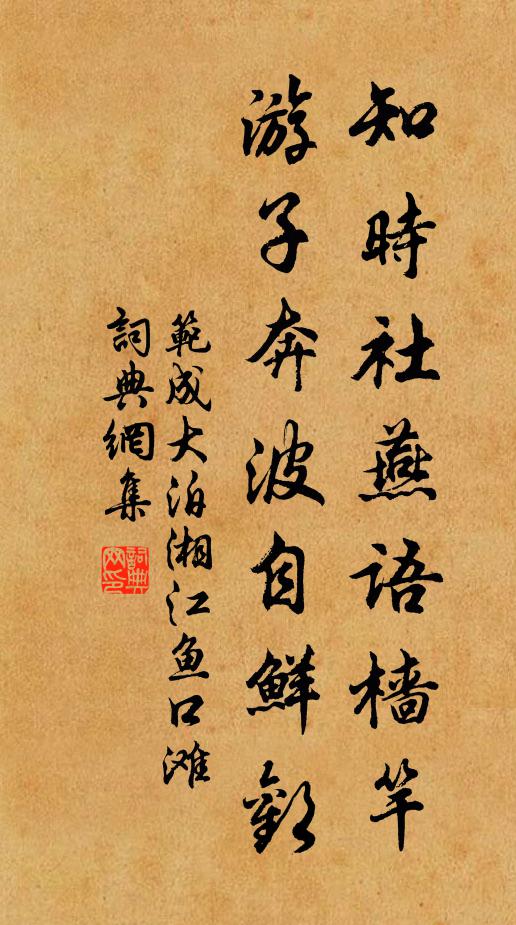 知時社燕語檣竿
游子奔波自鮮歡
範成大泊湘江鱼口滩
詞典網集
詞典
网印